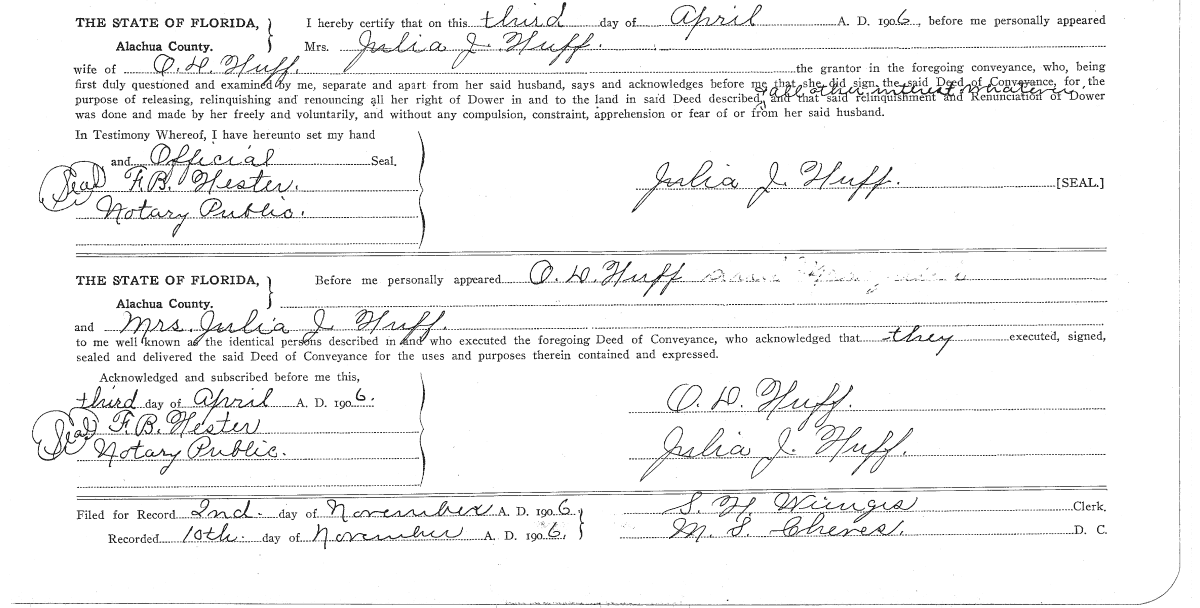 THE STATE OF FLORIDA, } I hereby certify that on this third day of April A. D. 1906, before me personally appeared
Alachua County. Mrs. Julia J. Huff.
wife of O. D. Huff. the grantor in the foregoing conveyance, who, being
first duly questioned and examined by me, separate and apart from her said husband, says and acknowledges before me that she did sign the said Deed of Conveyance, for the
& all other interest whatever,
purpose of releasing, relinquishing and renouncing all her right of Dower in and to the land in said Deed described, and that said relinquishment and Renunciation of Dower
was done and made by her freely and voluntarily, and without any compulsion, constraint, apprehension or fear of or from her said husband.
In Testimony Whereof, I have hereunto set my hand
and Official Seal.
Seal F. B. Hester. Julia J. Huff. [SEAL.]
Notary Public.
THE STATE OF FLORIDA, } Before me personally appeared O. D. Huff
Alachua County.
and Mrs. Julia J. Huff.
to me well known as the identical persons described in and who executed the foregoing Deed of Conveyance, who acknowledged that they executed, signed,
sealed and delivered the said Deed of Conveyance for the uses and purposes therein contained and expressed.
Acknowledged and subscribed before me this,
third day of April A. D. 1906. O. D. Huff.
Seal F. B. Hester
Notary Public. Julia J. Huff.
Filed for Record 2nd. day of November A. D. 1906 } S. H. Wienges Clerk.
Recorded 10th. day of November A. D. 1906. M. S. Cheves. D. C.